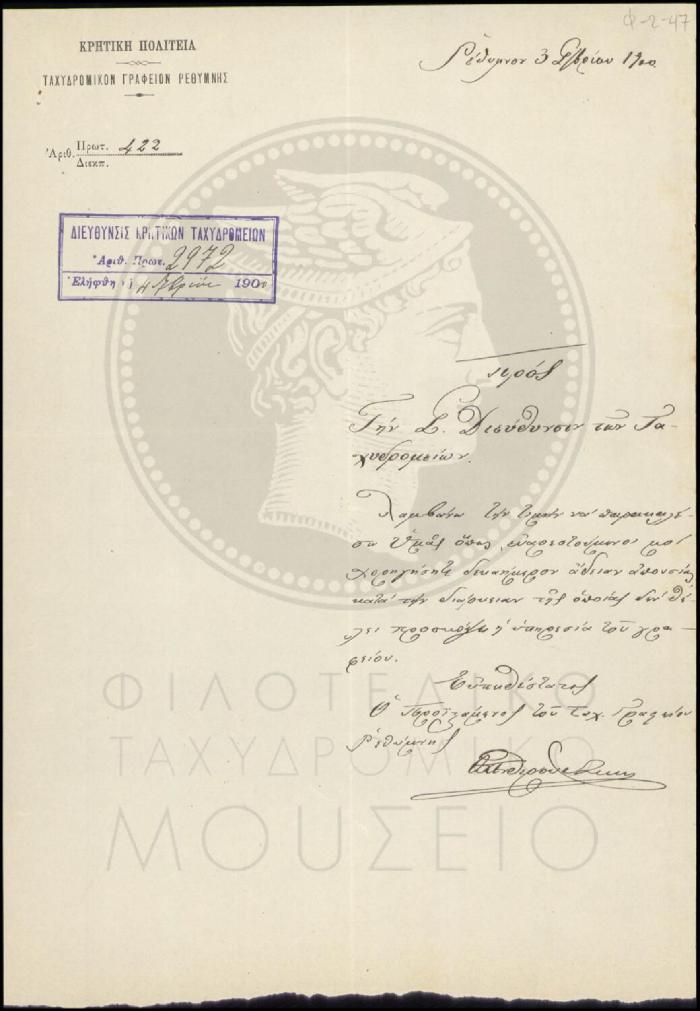 Φ-2-47
ΚΡΗΤΙΚΗ ΠΟΛΙΤΕΙΑ
ΤΑΧΥΔΡΟΜΙΚΟΝ ΓΡΑΦΕΙΟΝ ΡΕΘΥΜΝΗΣ
Ρέθυμνον 3 1900
Ἀριθ. Πρωτ. 422
Διεκπ.
ΔΙΕΥΘΥΝΣΙΣ ΚΡΗΤΙΚΩΝ ΤΑΧΥΔΡΟΜΕΙΩΝ
Ἀριθ. Πρωτ. 2972
Ἐλήφθη τῇ 4 1900
πρός
Τὴν Σ. Διεύθυνσιν τῶν Τα-
χυδρομείων.
Λαμβάνω τὴν τιμὴν νὰ παρακαλέ-
σω Ὑμᾶς ὅπως, εὐαρεστούμενοι μοὶ
χορηγήσητε δεκαήμερον ἄδειαν ἀπουσίας
κατὰ τὴν διάρκειαν τῆς ὁποίας δὲν θέ-
λει προσκόψῃ ἡ ὑπηρεσία τοῦ γρα-
φείου.
Εὐπειθέστατος
Ὁ Προϊστάμενος τοῦ ταχ. Γραφείου
Ρεθύμνης
ΦΙΛΟΤΕΛΙΚΟ
ΤΑΧΥΔΡΟΜΙΚΟ
ΜΟΥΣΕΙΟ